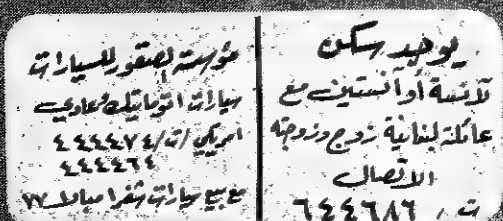 يوجد سكن
لآنسة أو آنستين مع
عائلة لبنانية زوج وزوجته
الاتصال
ت، ٦٤٤٦٨٦
مؤسسة الصقور للسيارات
سيارات اتوماتيك وعادي
امريكي /ت/ ٤٤٤٤٧٤
٤٤٤٤٦٤
مع بيع سيارات شفر امبالا ٧٧